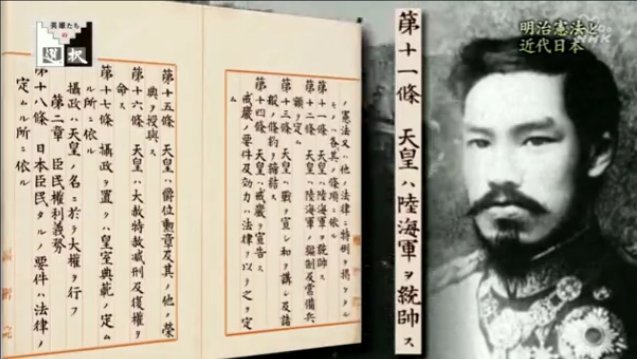 英雄たちの
選択
明治憲法と
近代日本
NHK
第十一條 天皇ハ陸海軍ヲ統帥ス
ノ憲法又ハ他ノ法律ニ特例ヲ掲ケタル
モノハ各其ノ條項ニ依ル
第十一條 天皇ハ陸海軍ヲ統帥ス
第十二條 天皇ハ陸海軍ノ編制及常備兵
額ヲ定ム
第十三條 天皇ハ戰ヲ宣シ和ヲ講シ及諸
般ノ條約ヲ締結ス
第十四條 天皇ハ戒嚴ヲ宣告ス
戒嚴ノ要件及効力ハ法律ヲ以テ之ヲ定
ム
第十五條 天皇ハ爵位勲章及其ノ他ノ榮
典ヲ授與ス
第十六條 天皇ハ大赦特赦減刑及復權ヲ
命ス
第十七條 攝政ヲ置クハ皇室典範ノ定ム
ル所ニ依ル
攝政ハ天皇ノ名ニ於テ大權ヲ行フ
第二章 臣民權利義務
第十八條 日本臣民タルノ要件ハ法律ノ
定ムル所ニ依ル